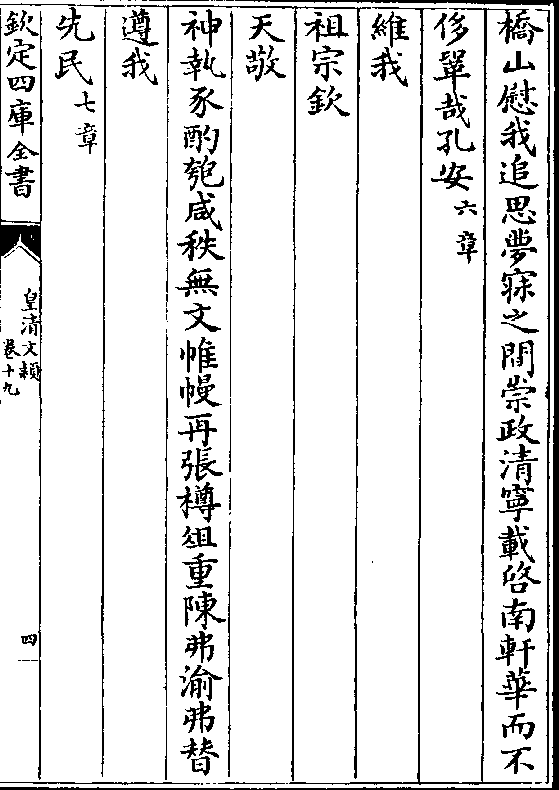 橋山慰我追思夢寐之間崇政清寧載啓南軒華而不
侈鞏哉孔安六章
維我
祖宗欽
天敬
神執豕酌匏咸秩無文帷幔再張樽俎重陳弗渝弗替
遵我
先民七章
欽定四庫全書
皇清文穎
卷十九
四